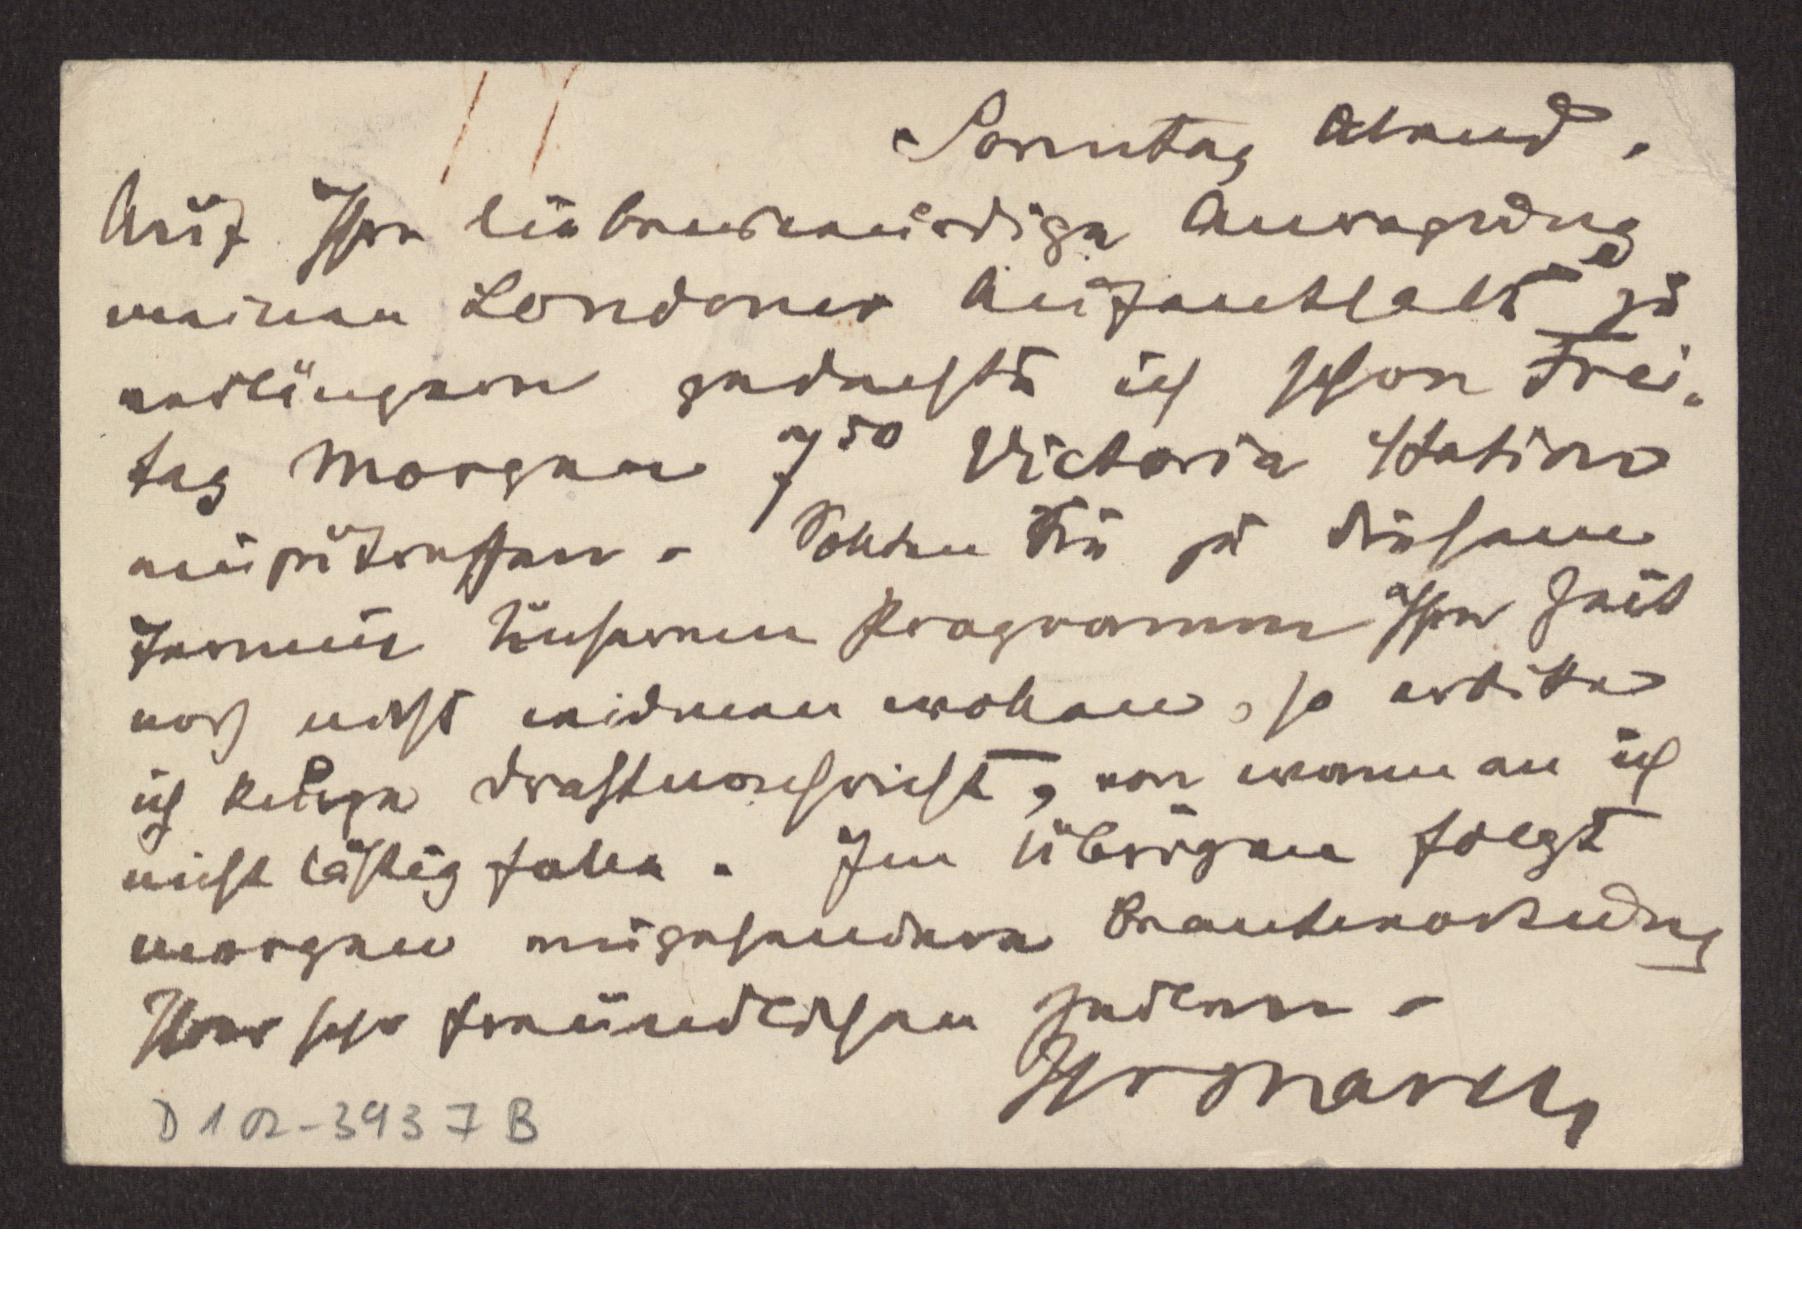 Sonntag Abend.
Auf Ihre liebenswürdige Anregung
meinen Londoner Aufenthalt zu
verlängern gedachte ich schon Frei-
tag Morgen 7 50 Victoria Station
einzutreffen. Sollten Sie zu diesem
Termin unserem Programm Ihre Zeit
noch nicht widmen wollen, so erbitte
ich kurze Drahtnachricht, von wann an ich
nicht lästig falle. Im Übrigen folgt
morgen eingehendere Beantwortung
Ihrer sehr freundlichen Zeilen.
Ihr
D 102-3937 B